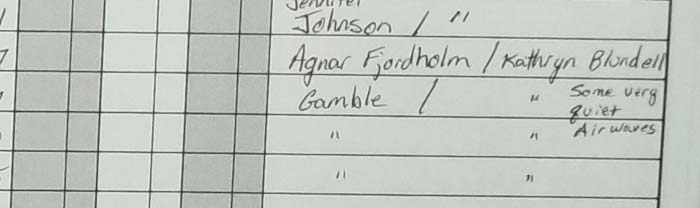 Jennifer
Johnson / "
Agnar Fjordholm / Kathryn Blundell
Gamble / " Some very
quiet
" " Airwaves
" "